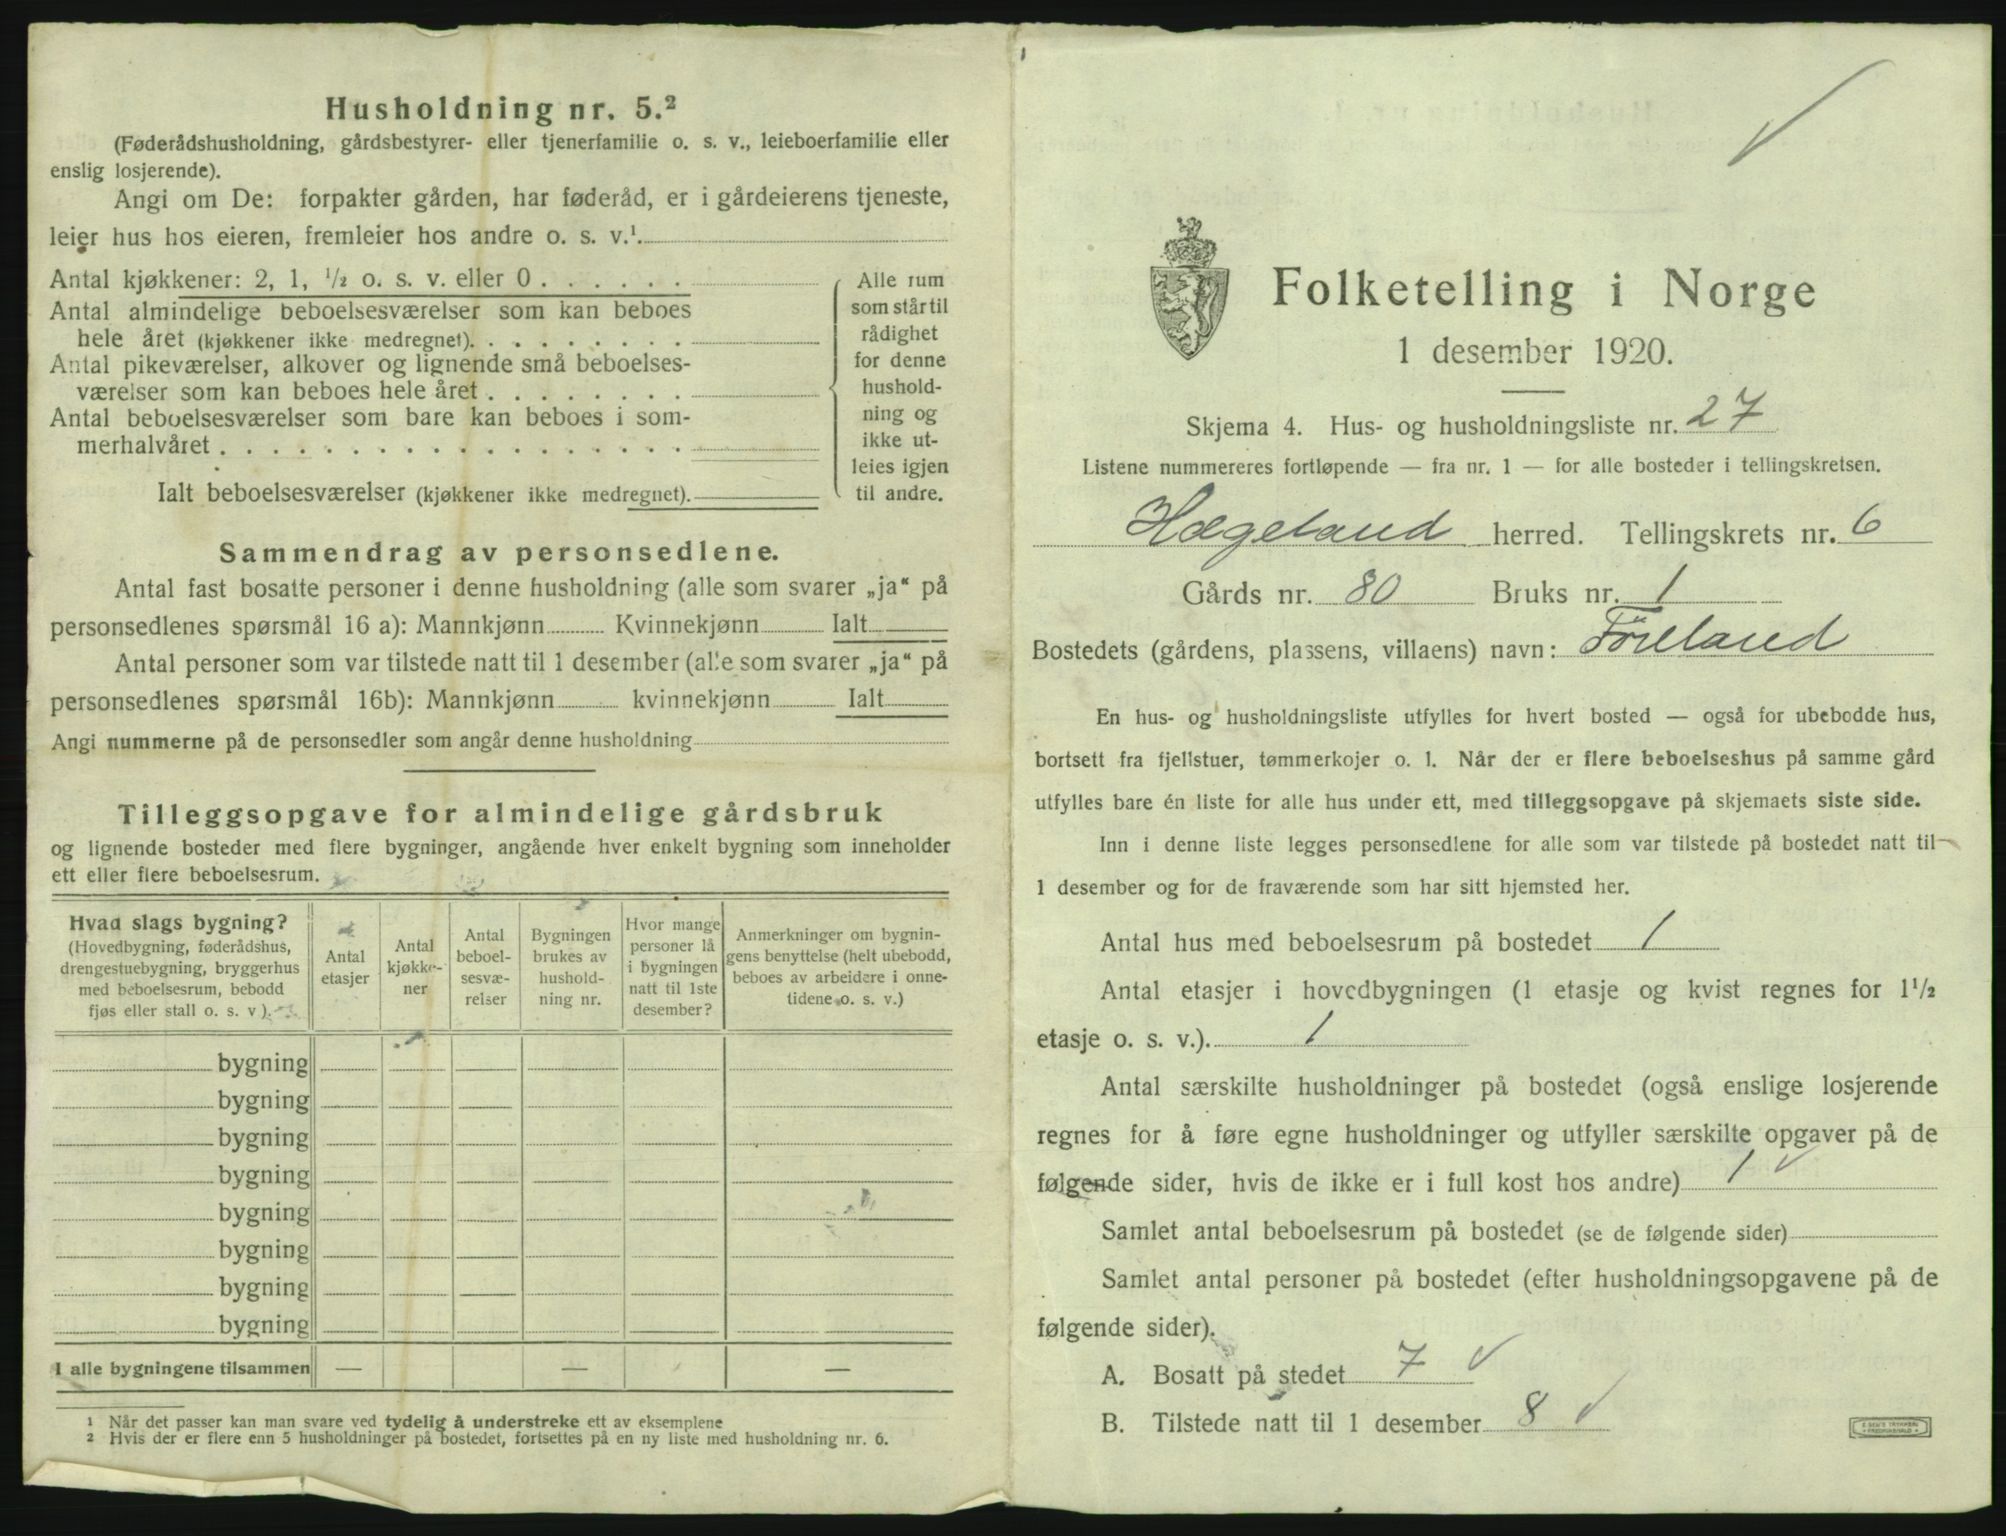 Husholdning nr. 5.²
(Føderådshusholdning, gårdsbestyrer- eller tjenerfamilie o. s. v., leieboerfamilie eller
enslig losjerende).
Angi om De: forpakter gården, har føderåd, er i gårdeierens tjeneste,
leier hus hos eieren, fremleier hos andre o. s. v.¹.
Antal kjøkkener: 2, 1, ½ o. s. v. eller 0 . . . . . .
Antal almindelige beboelsesværelser som kan beboes
hele året (kjøkkener ikke medregnet). . . . . . . . .
Antal pikeværelser, alkover og lignende små beboelses-
værelser som kan beboes hele året . . . . . . . .
Antal beboelsesværelser som bare kan beboes i som-
merhalvåret . . . . . . . . . . . . . . . . . .
Ialt beboelsesværelser (kjøkkener ikke medregnet).
Alle rum
som står til
rådighet
for denne
hushold-
ning og
ikke ut-
leies igjen
til andre.
Sammendrag av personsedlene.
Antal fast bosatte personer i denne husholdning (alle som svarer „ja“ på
personsedlenes spørsmål 16 a): Mannkjønn Kvinnekjønn Ialt
Antal personer som var tilstede natt til 1 desember (alle som svarer „ja“ på
personsedlenes spørsmål 16b): Mannkjønn kvinnekjønn Ialt
Angi nummerne på de personsedler som angår denne husholdning
Tilleggsopgave for almindelige gårdsbruk
og lignende bosteder med flere bygninger, angående hver enkelt bygning som inneholder
ett eller flere beboelsesrum.
Hvad slags bygning?
(Hovedbygning, føderådshus,
drengestuebygning, bryggerhus
med beboelsesrum, bebodd
fjøs eller stall o. s. v ).
Antal
etasjer
Antal
kjøkke-
ner
Antal
beboel-
sesvæ-
relser
Bygningen
brukes av
hushold-
ning nr.
Hvor mange
personer lå
i bygningen
natt til 1ste
desember?
Anmerkninger om bygnin-
gens benyttelse (helt ubebodd,
beboes av arbeidere i onne-
tidene o. s. v.)
bygning
bygning
bygning
bygning
bygning
bygning
bygning
bygning
I alle bygningene tilsammen — — —
¹ Når det passer kan man svare ved tydelig å understreke ett av eksemplene
² Hvis der er flere enn 5 husholdninger på bostedet, fortsettes på en ny liste med husholdning nr. 6.
Folketelling i Norge
1 desember 1920.
Skjema 4. Hus- og husholdningsliste nr. 27
Listene nummereres fortløpende — fra nr. 1 — for alle bosteder i tellingskretsen.
Hægeland herred. Tellingskrets nr. 6
Gårds nr. 80 Bruks nr. 1
Bostedets (gårdens, plassens, villaens) navn: Föreland
En hus- og husholdningsliste utfylles for hvert bosted — også for ubebodde hus,
bortsett fra fjellstuer, tømmerkojer o. l. Når der er flere beboelseshus på samme gård
utfylles bare én liste for alle hus under ett, med tilleggsopgave på skjemaets siste side.
Inn i denne liste legges personsedlene for alle som var tilstede på bostedet natt til
1 desember og for de fraværende som har sitt hjemsted her.
Antal hus med beboelsesrum på bostedet 1
Antal etasjer i hovedbygningen (1 etasje og kvist regnes for 1½
etasje o. s. v.). 1
Antal særskilte husholdninger på bostedet (også enslige losjerende
regnes for å føre egne husholdninger og utfyller særskilte opgaver på de
følgende sider, hvis de ikke er i full kost hos andre) 1
Samlet antal beboelsesrum på bostedet (se de følgende sider)
Samlet antal personer på bostedet (efter husholdningsopgavene på de
følgende sider).
A. Bosatt på stedet 7
B. Tilstede natt til 1 desember 8